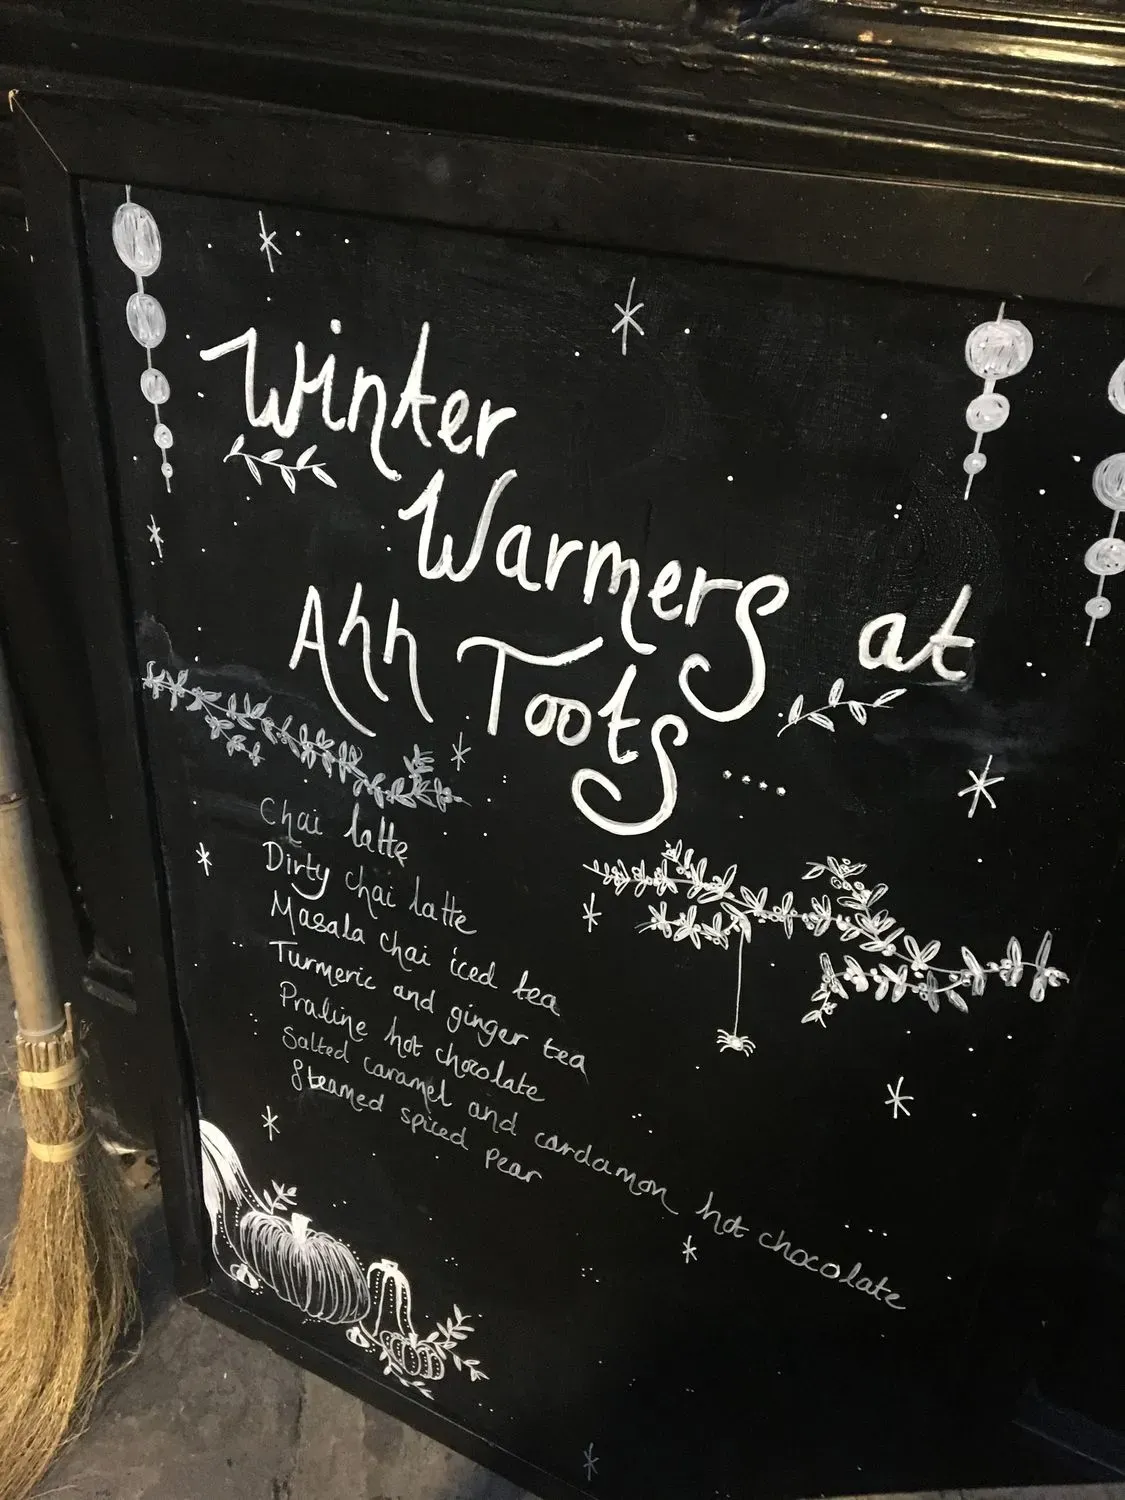 Winter
Warmers at
Ahh Toots ....
Chai latte
Dirty chai latte
Masala chai iced tea
Turmeric and ginger tea
Praline hot chocolate
Salted caramel and cardamon hot chocolate
Steamed spiced pear